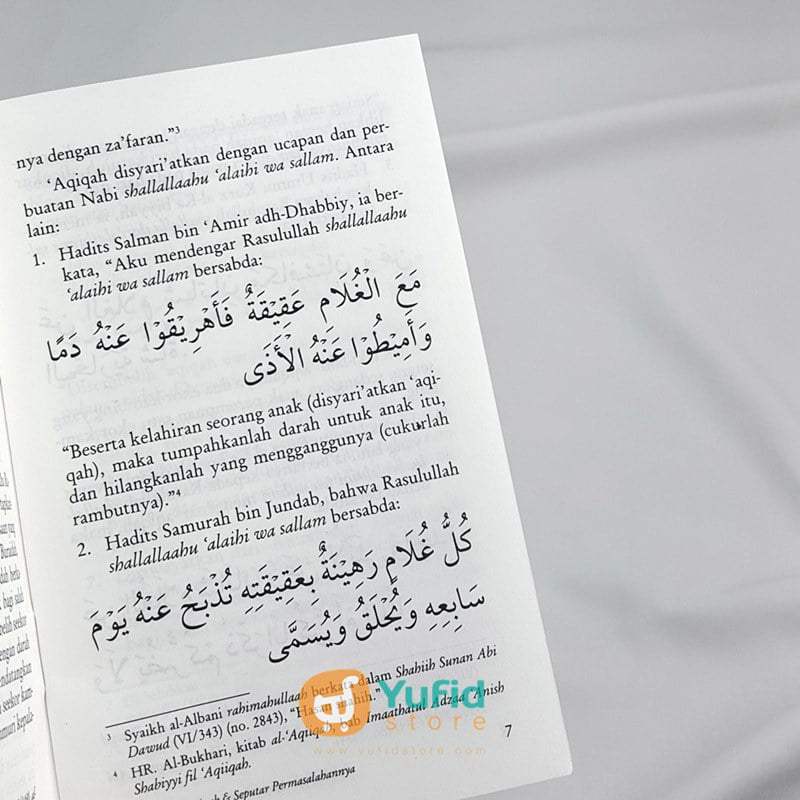 nya dengan za'faran."³
'Aqiqah disyari'atkan dengan ucapan dan per-
buatan Nabi shallallaahu 'alaihi wa sallam. Antara
lain:
1. Hadits Salman bin 'Amir adh-Dhabbiy, ia ber-
kata, "Aku mendengar Rasulullah shallallaahu
'alaihi wa sallam bersabda:
مَعَ الْغُلَامِ عَقِيْقَةٌ فَأَهْرِيْقُوْا عَنْهُ دَمًا
وَأَمِيْطُوْا عَنْهُ الْأَذَى
"Beserta kelahiran seorang anak (disyari'atkan 'aqi-
qah), maka tumpahkanlah darah untuk anak itu,
dan hilangkanlah yang mengganggunya (cukurlah
rambutnya)."⁴
2. Hadits Samurah bin Jundab, bahwa Rasulullah
shallallaahu 'alaihi wa sallam bersabda:
كُلُّ غُلَامٍ رَهِيْنَةٌ بِعَقِيْقَتِهِ تُذْبَحُ عَنْهُ يَوْمَ
سَابِعِهِ وَيُحْلَقُ وَيُسَمَّى
³ Syaikh al-Albani rahimahullaah berkata dalam Shahiih Sunan Abi
Dawud (VI/343) (no. 2843), "Hasan shahih."
⁴ HR. Al-Bukhari, kitab al-'Aqiiqah, bab Imaathatul Adzaa 'Anish
Shabiyyi fil 'Aqiiqah.
& Seputar Permasalahannya
7
Yufid
store
www.yufidstore.com